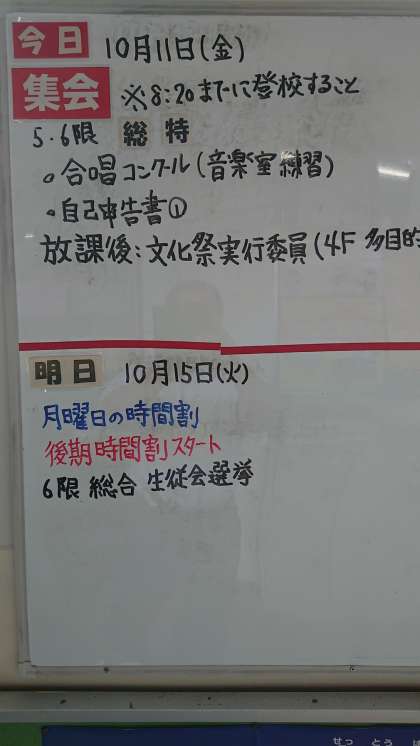 今日 10月11日(金)
集会 ※8:20までに登校すること
5.6限 総 特
。合唱コンクール(音楽室練習)
・自己申告書①
放課後:文化祭実行委員(4F 多目的
明日 10月15日(火)
月曜日の時間割
後期時間割スタート
6限 総合 生徒会選挙
せっ とう